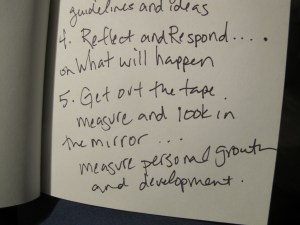 guidelines and ideas
4. Reflect and Respond....
on What will happen
5. Get out the tape
measure and look in
the mirror...
measure personal growth
and development.